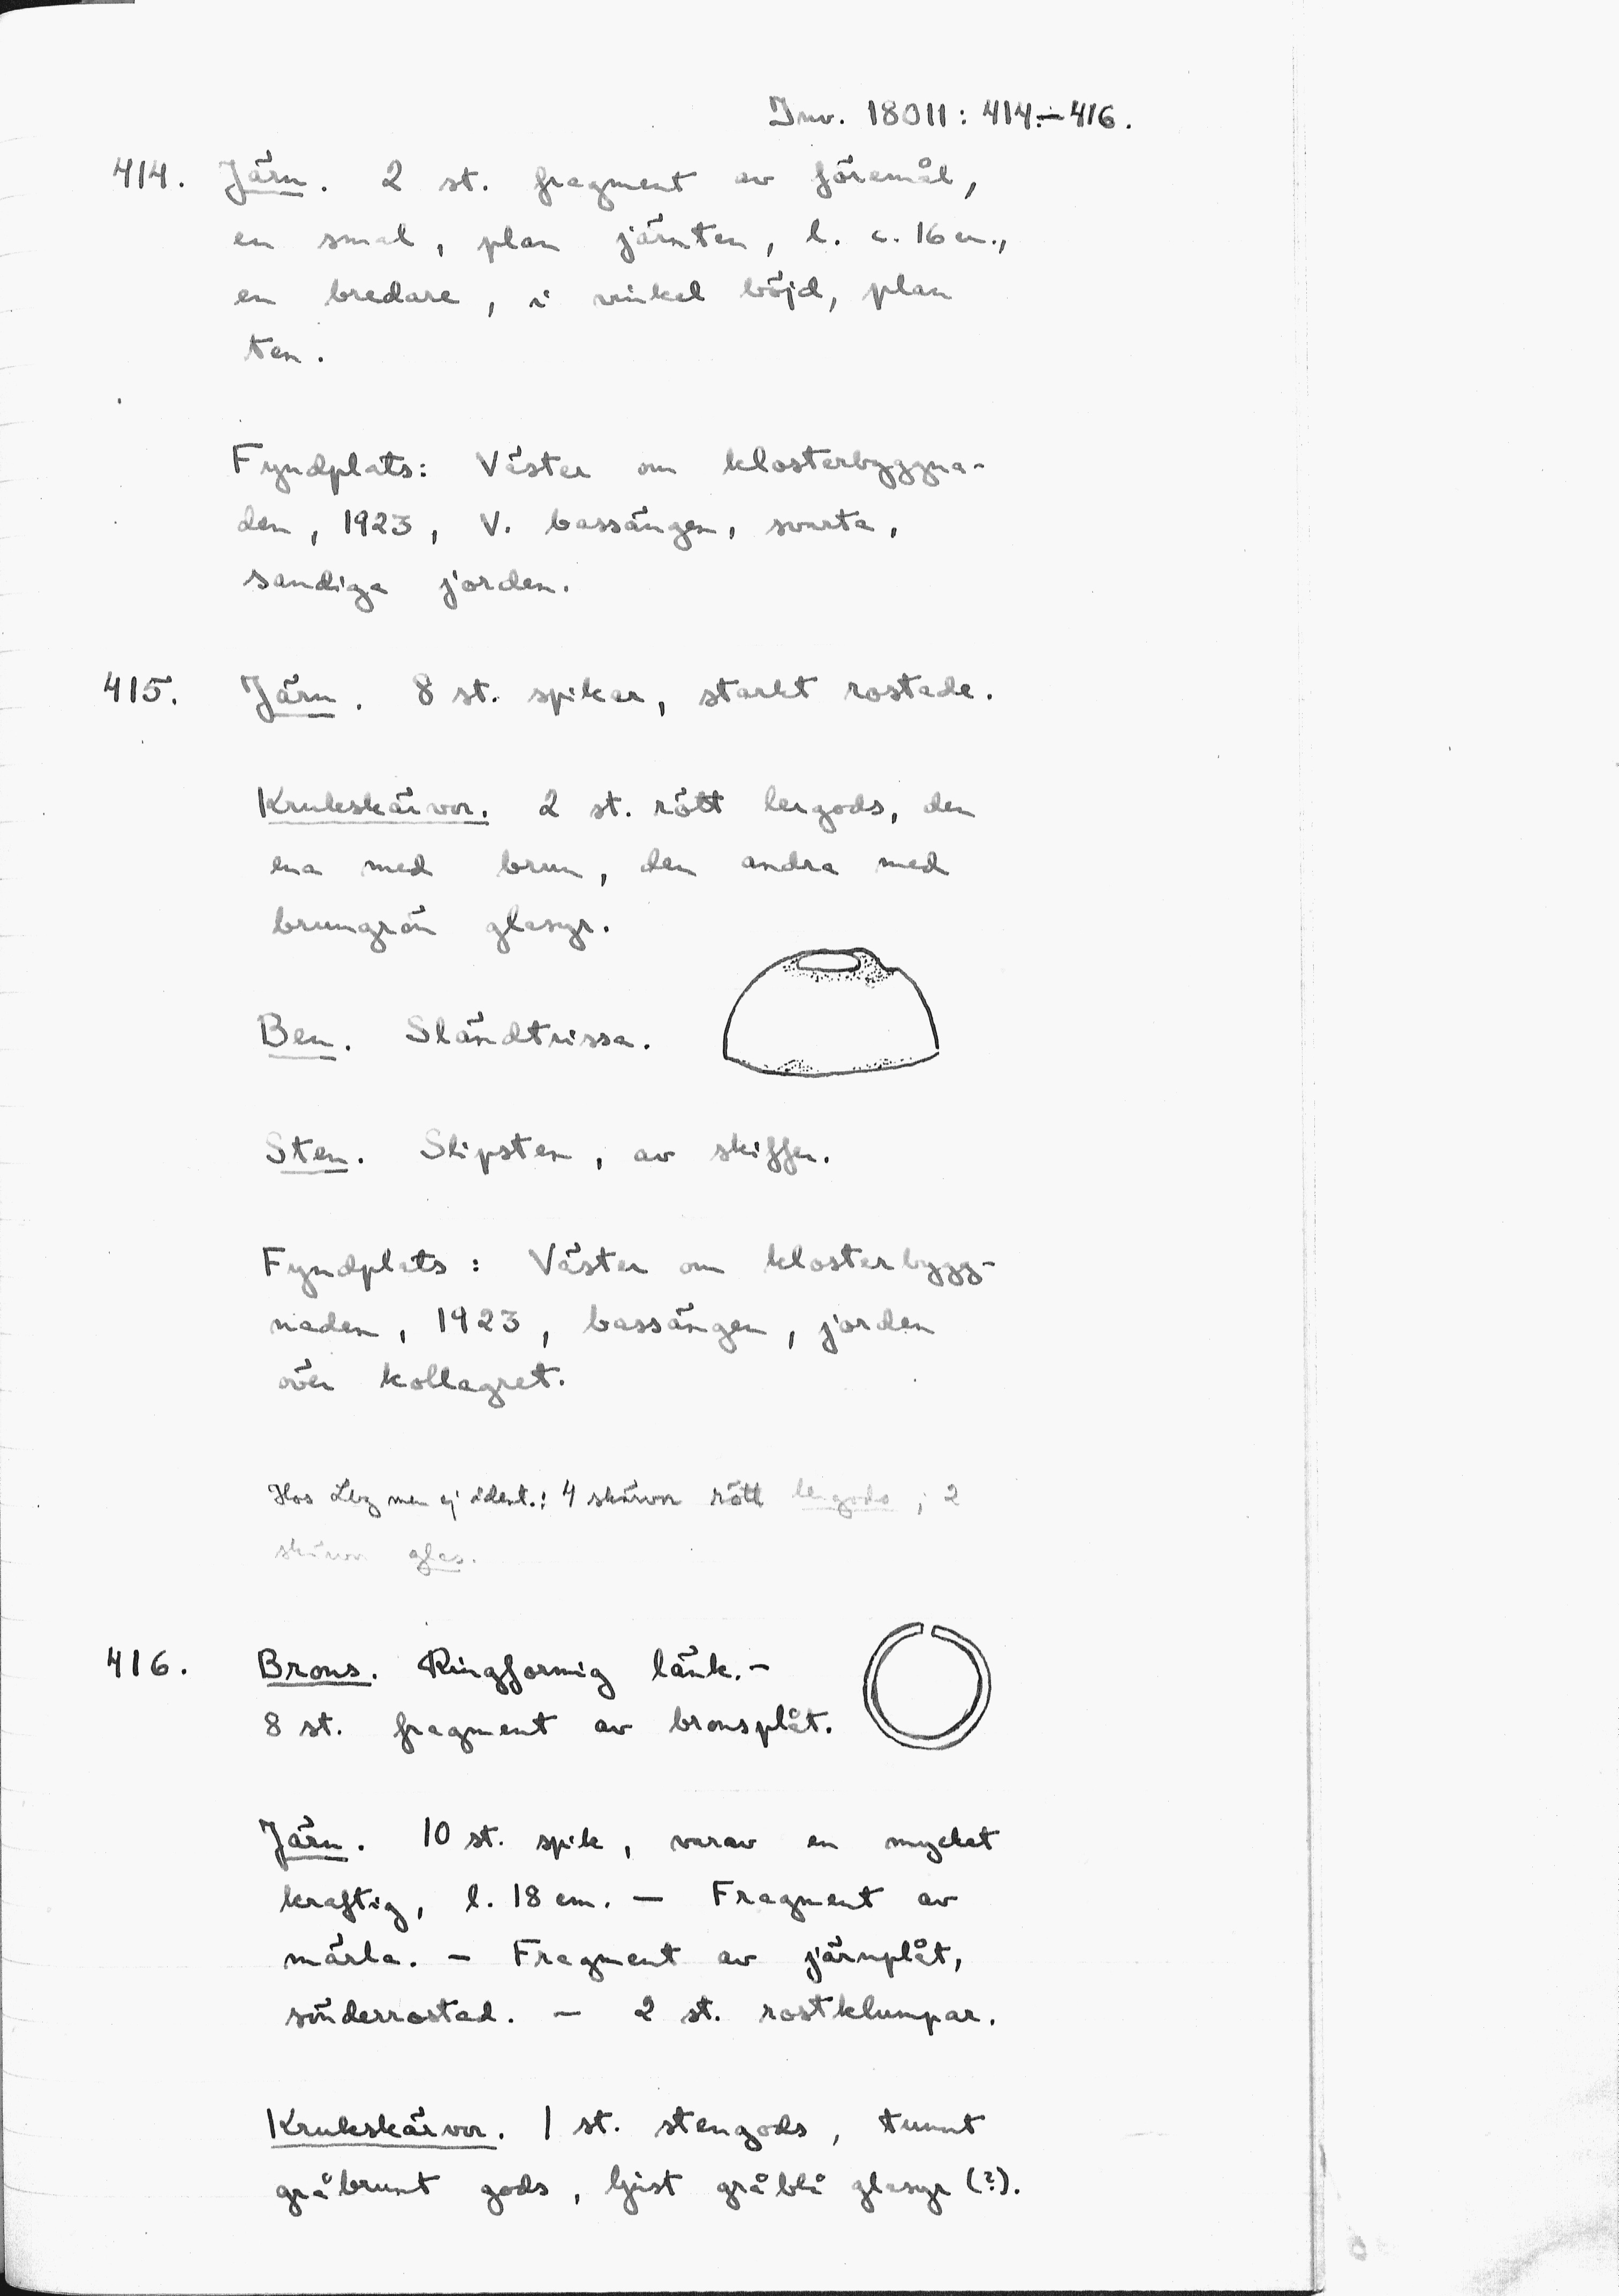 Inv. 18011: 414.—416.
414. Järn. 2 st. fragment av föremål,
en smal, plan järnten, l. c. 16 cm.,
en bredare, i vinkel böjd, plan
ten.
Fyndplats: Väster om klosterbyggna-
den, 1923, V. bassängen, svarta,
sandiga jorden.
415. Järn. 8 st. spikar, starkt rostade.
Krukskärvor. 2 st. rött lergods, den
ena med brun, den andra med
brungrön glasyr.
Ben. Sländtrissa.
Sten. Slipsten, av skiffer.
Fyndplats: Väster om klosterbygg-
naden, 1923, bassängen, jorden
över kollagret.
Hos Lbg men ej ident.: 4 skärvor rött lergods; 2
skärvor glas.
416. Brons. Ringformig länk.—
8 st. fragment av bronsplåt.
Järn. 10 st. spik, varav en mycket
kraftig, l. 18 cm. — Fragment av
märla. — Fragment av järnplåt,
sönderrostad. — 2 st. rostklumpar.
Krukskärvor. 1 st. stengods, tunnt
gråbrunt gods, ljust gråblå glasyr (?).